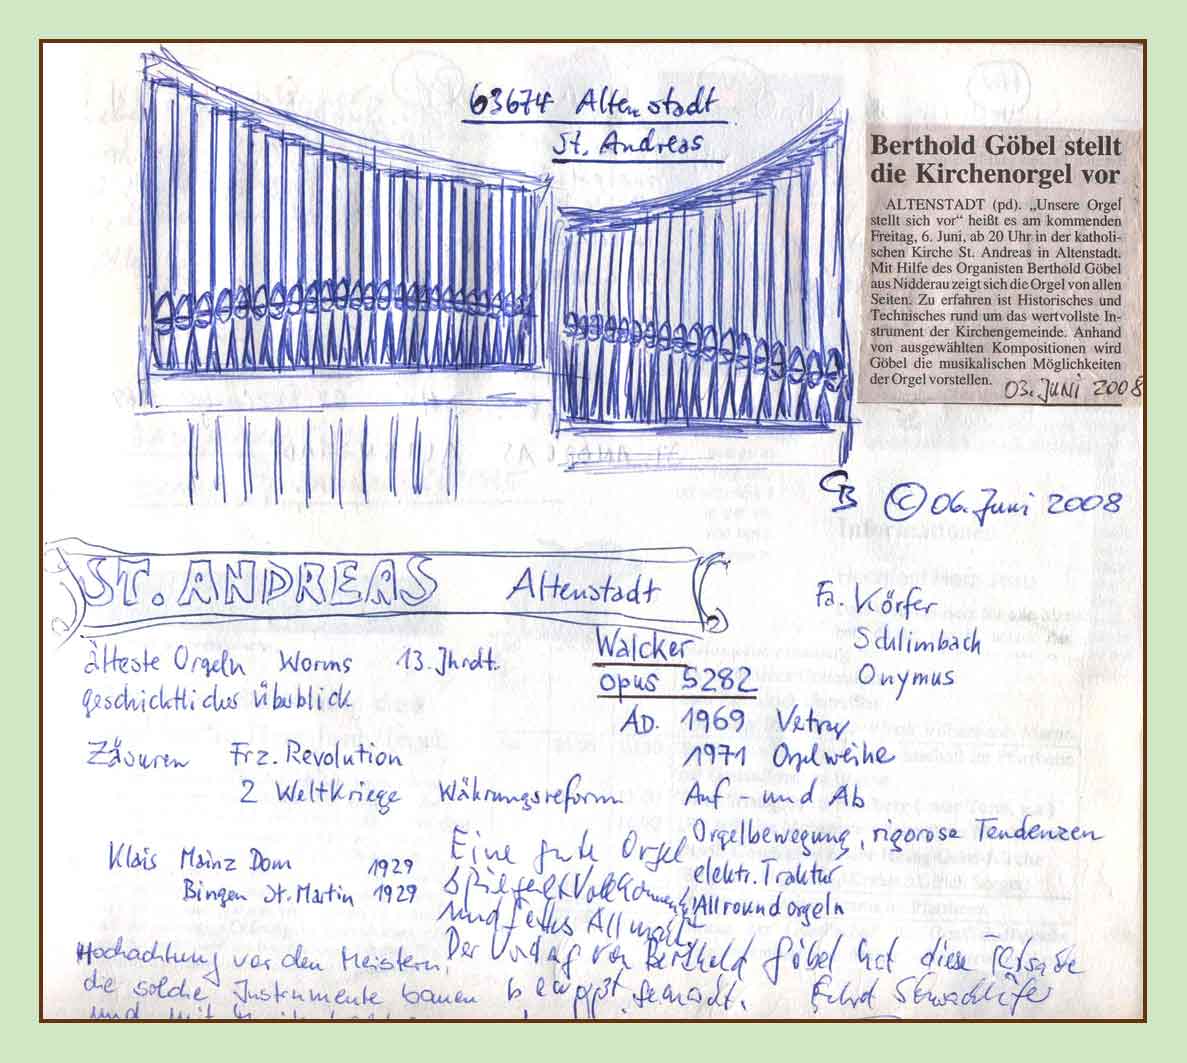 63674 Altenstadt
St. Andreas
Berthold Göbel stellt
die Kirchenorgel vor
ALTENSTADT (pd). „Unsere Orgel
stellt sich vor“ heißt es am kommenden
Freitag, 6. Juni, ab 20 Uhr in der katholi-
schen Kirche St. Andreas in Altenstadt.
Mit Hilfe des Organisten Berthold Göbel
aus Nidderau zeigt sich die Orgel von allen
Seiten. Zu erfahren ist Historisches und
Technisches rund um das wertvollste In-
strument der Kirchengemeinde. Anhand
von ausgewählten Kompositionen wird
Göbel die musikalischen Möglichkeiten
der Orgel vorstellen.
03. JUNI 2008
GB © 06. Juni 2008
ST. ANDREAS Altenstadt
Fa. Körfer
Schlimbach
Onymus
älteste Orgeln Worms 13. Jhrdt.
geschichtlicher Überblick
Walcker
opus 5282
AD. 1969 Vetrag
1971 Orgelweihe
Zäsuren Frz. Revolution
2 Weltkriege Währungsreform
Auf- und Ab
Orgelbewegung, rigorose Tendenzen
elektr. Traktur
Allroundorgeln
Klais Mainz Dom 1929
Bingen St. Martin 1929
Eine gute Orgel
spiegelt
und Gottes Allmacht
Der Vortag von Berthold Göbel hat diese
bewußt gemacht.
Hochachtung vor den Meistern,
die solche Instrumente bauen
und mit